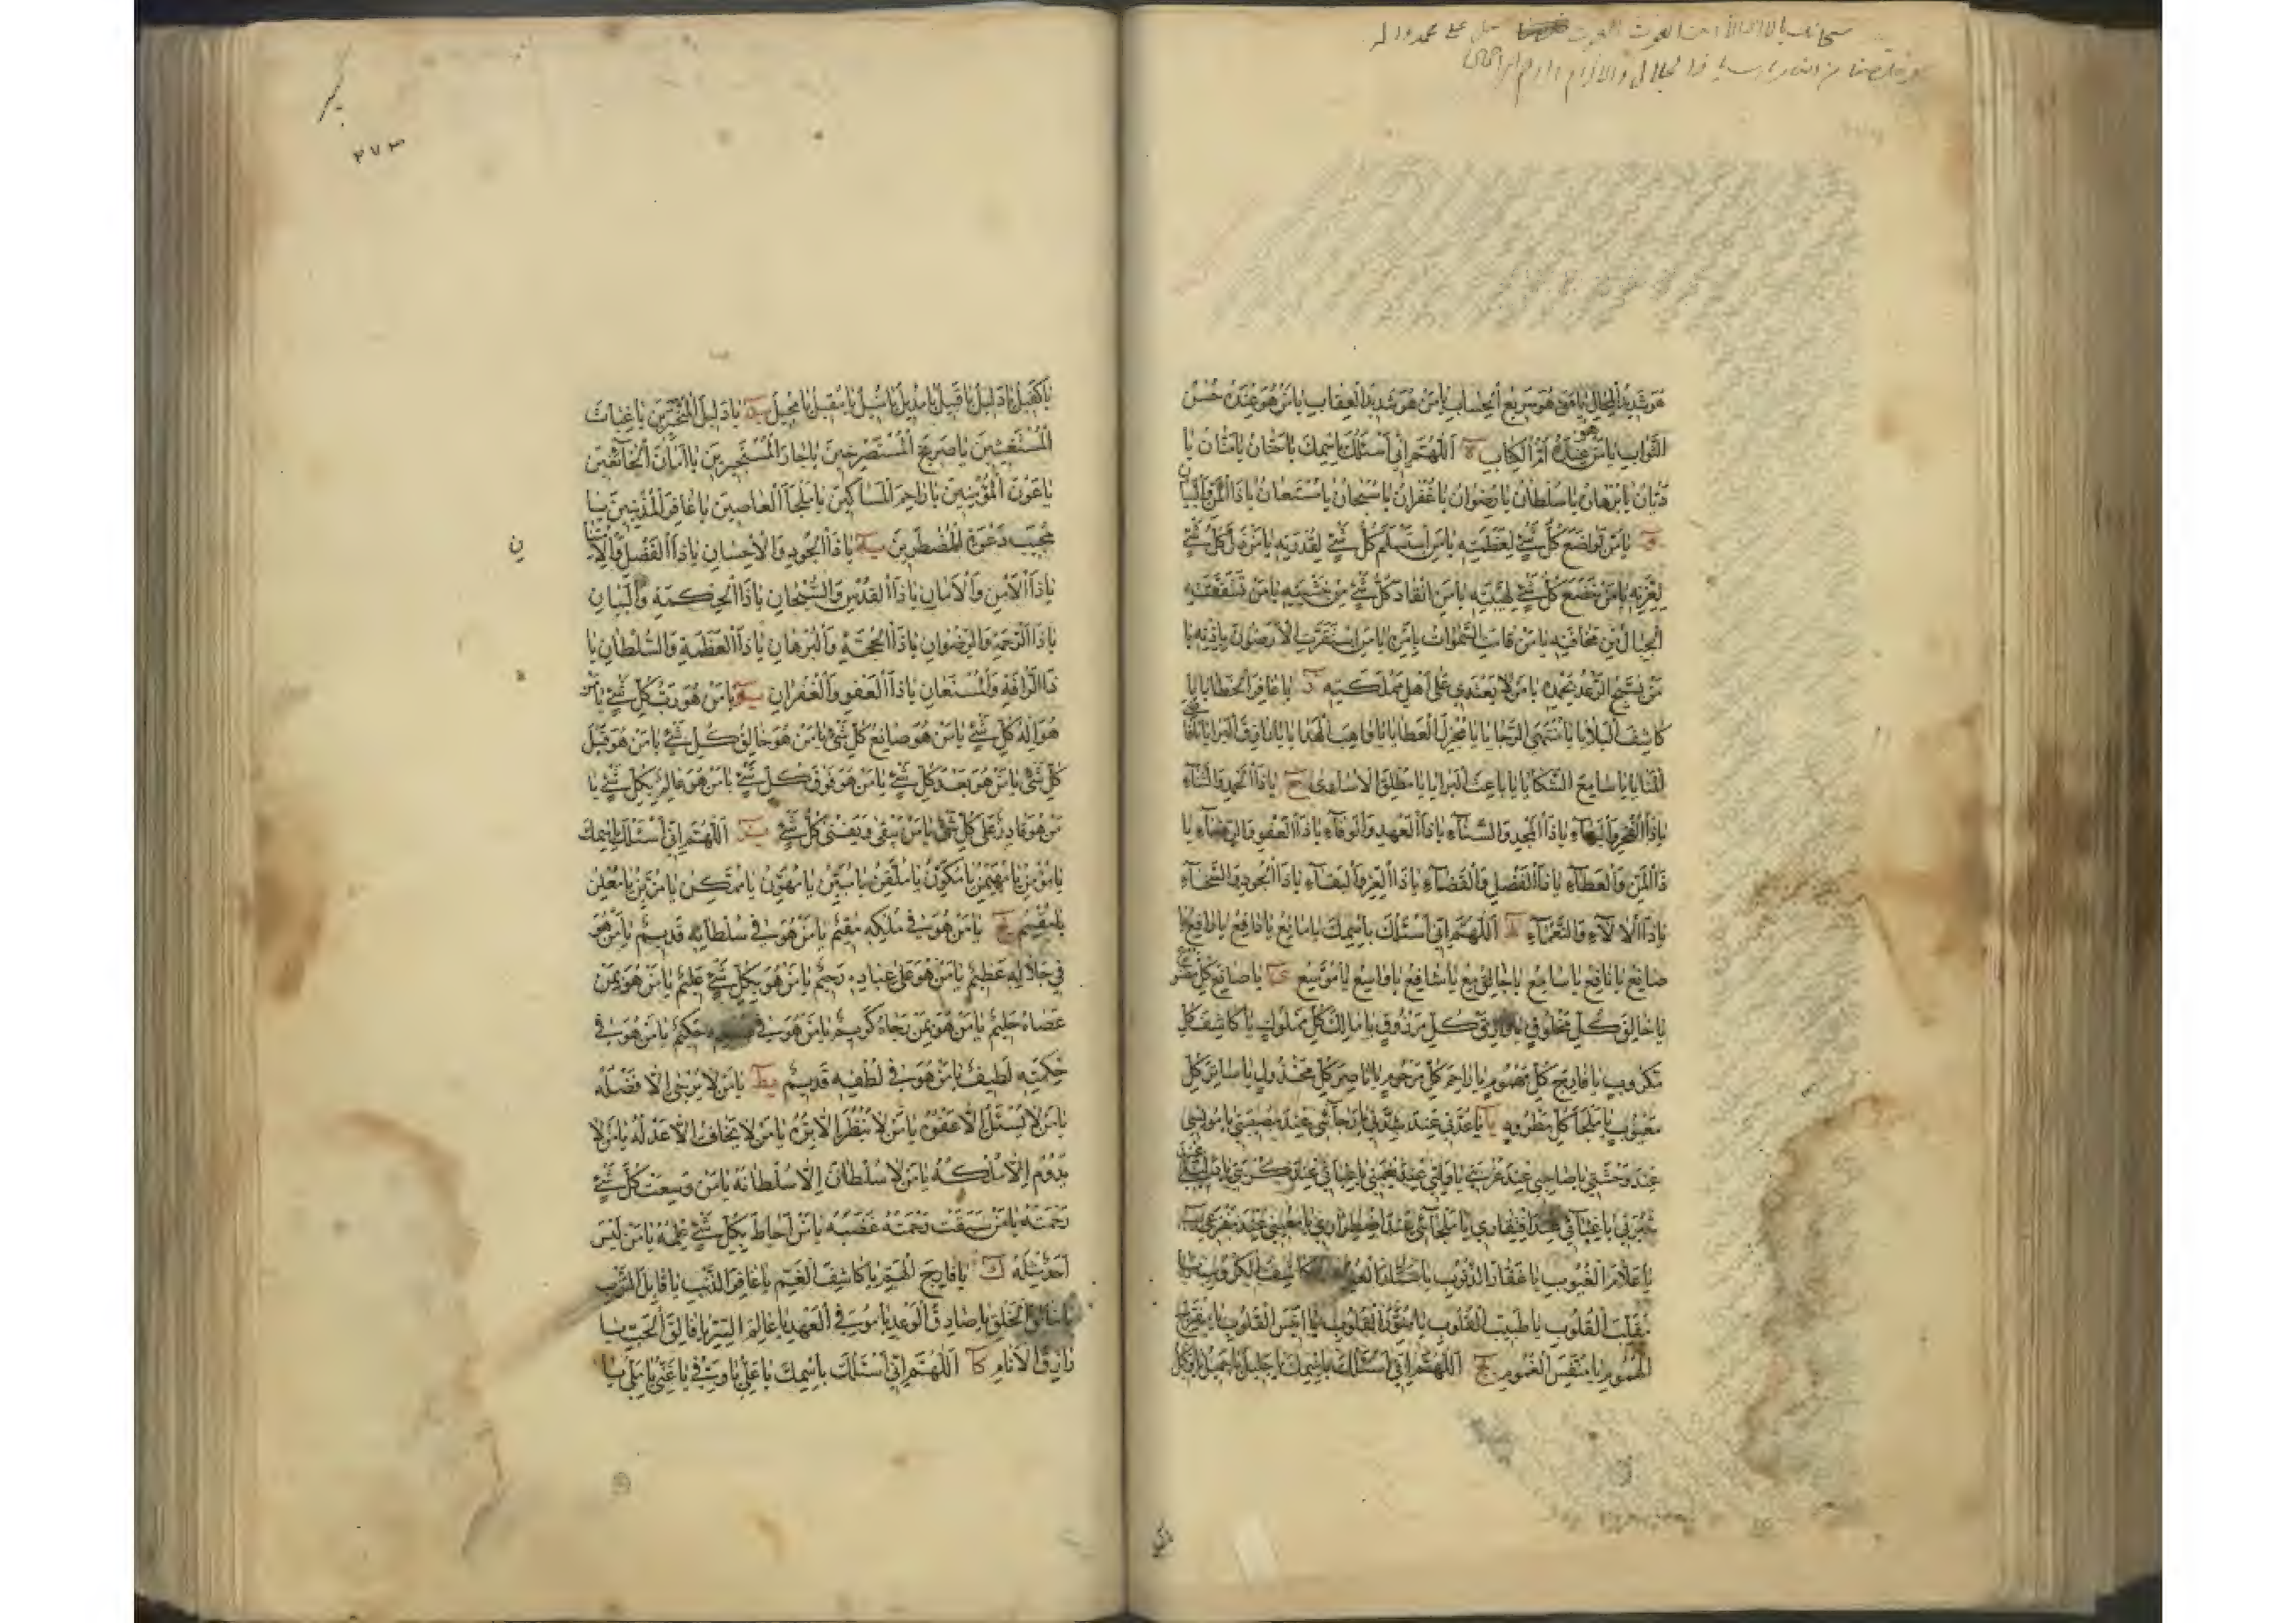 سبحانك يا لا اله الا انت الغوث الغوث صل على محمد و اله
و خلصنا من النار يا رب يا ذا الجلال والاكرام يا ارحم الراحمين
هُوَ شَدِيدُ الْمِحَالِ يَا مَنْ هُوَ سَرِيعُ الْحِسَابِ يَا مَنْ هُوَ شَدِيدُ الْعِقَابِ يَا مَنْ هُوَ عِنْدَهُ حُسْنُ
الثَّوَابِ يَا مَنْ هو عِنْدَهُ اُمُّ الْكِتَابِ ة اَللّٰهُمَّ اِنِّي اَسْئَلُكَ بِاسْمِكَ يَا حَنَّانُ يَا مَنَّانُ يَا
دَيَّانُ يَا بُرْهَانُ يَا سُلْطَانُ يَا رِضْوَانُ يَا غُفْرَانُ يَا سُبْحَانُ يَا مُسْتَعَانُ يَا ذَا الْمَنِّ وَالْبَيَانِ
و يَا مَنْ تَوَاضَعَ كُلُّ شَيْءٍ لِعَظَمَتِهِ يَا مَنِ اسْتَسْلَمَ كُلُّ شَيْءٍ لِقُدْرَتِهِ يَا مَنْ ذَلَّ كُلُّ شَيْءٍ
لِعِزَّتِهِ يَا مَنْ خَضَعَ كُلُّ شَيْءٍ لِهَيْبَتِهِ يَا مَنِ انْقَادَ كُلُّ شَيْءٍ مِنْ خَشْيَتِهِ يَا مَنْ تَشَقَّقَتِ
الْجِبَالُ مِنْ مَخَافَتِهِ يَا مَنْ قَامَتِ السَّمٰوَاتُ بِاَمْرِهِ يَا مَنِ اسْتَقَرَّتِ الْاَرَضُونَ بِاِذْنِهِ يَا
مَنْ يُسَبِّحُ الرَّعْدُ بِحَمْدِهِ يَا مَنْ لَا يَعْتَدِي عَلَى اَهْلِ مَمْلَكَتِهِ ز يَا غَافِرَ الْخَطَايَا يَا
كَاشِفَ الْبَلَايَا يَا مُنْتَهَى الرَّجَايَا يَا مُجْزِلَ الْعَطَايَا يَا وَاهِبَ الْهَدَايَا يَا رَازِقَ الْبَرَايَا يَا قَاضِيَ
الْمَنَايَا يَا سَامِعَ الشَّكَايَا يَا بَاعِثَ الْبَرَايَا يَا مُطْلِقَ الْاُسَارَى ح يَا ذَا الْحَمْدِ وَالثَّنَاءِ
يَا ذَا الْفَخْرِ وَالْبَهَاءِ يَا ذَا الْمَجْدِ وَالسَّنَاءِ يَا ذَا الْعَهْدِ وَالْوَفَاءِ يَا ذَا الْعَفْوِ وَالرِّضَاءِ يَا
ذَا الْمَنِّ وَالْعَطَاءِ يَا ذَا الْفَضْلِ وَالْقَضَاءِ يَا ذَا الْعِزِّ وَالْبَقَاءِ يَا ذَا الْجُودِ وَالسَّخَاءِ
يَا ذَا الْاٰلَاءِ وَالنَّعْمَاءِ ط اَللّٰهُمَّ اِنِّي اَسْئَلُكَ بِاسْمِكَ يَا مَانِعُ يَا دَافِعُ يَا رَافِعُ يَا
صَانِعُ يَا نَافِعُ يَا سَامِعُ يَا جَامِعُ يَا شَافِعُ يَا وَاسِعُ يَا مُوسِعُ يَا صَانِعَ كُلِّ مَصْنُوعٍ
يَا خَالِقَ كُلِّ مَخْلُوقٍ يَا رَازِقَ كُلِّ مَرْزُوقٍ يَا مَالِكَ كُلِّ مَمْلُوكٍ يَا كَاشِفَ كُلِّ
مَكْرُوبٍ يَا فَارِجَ كُلِّ مَهْمُومٍ يَا رَاحِمَ كُلِّ مَرْحُومٍ يَا نَاصِرَ كُلِّ مَخْذُولٍ يَا سَاتِرَ كُلِّ
مَعْيُوبٍ يَا مَلْجَأَ كُلِّ مَطْرُودٍ يا يَا عُدَّتِي عِنْدَ شِدَّتِي يَا رَجَائِي عِنْدَ مُصِيبَتِي يَا مُونِسِي
عِنْدَ وَحْشَتِي يَا صَاحِبِي عِنْدَ غُرْبَتِي يَا وَلِيِّي عِنْدَ نِعْمَتِي يَا غِيَاثِي عِنْدَ كُرْبَتِي يَا دَلِيلِي عِنْدَ
حَيْرَتِي يَا غِنَائِي عِنْدَ افْتِقَارِي يَا مَلْجَائِي عِنْدَ اضْطِرَارِي يَا مُعِينِي عِنْدَ مَفْزَعِي يب
يَا عَلَّامَ الْغُيُوبِ يَا غَفَّارَ الذُّنُوبِ يَا سَتَّارَ الْعُيُوبِ يَا كَاشِفَ الْكُرُوبِ يَا
مُقَلِّبَ الْقُلُوبِ يَا طَبِيبَ الْقُلُوبِ يَا مُنَوِّرَ الْقُلُوبِ يَا اَنِيسَ الْقُلُوبِ يَا مُفَرِّجَ
الْهُمُومِ يَا مُنَفِّسَ الْغُمُومِ يج اَللّٰهُمَّ اِنِّي اَسْئَلُكَ بِاسْمِكَ يَا جَلِيلُ يَا جَمِيلُ يَا وَكِيلُ
٢٧٣
يَا كَفِيلُ يَا دَلِيلُ يَا قَبِيلُ يَا مُدِيلُ يَا مُنِيلُ يَا مُقِيلُ يَا مُحِيلُ يد يَا دَلِيلَ الْمُتَحَيِّرِينَ يَا غِيَاثَ
الْمُسْتَغِيثِينَ يَا صَرِيخَ الْمُسْتَصْرِخِينَ يَا جَارَ الْمُسْتَجِيرِينَ يَا اَمَانَ الْخَائِفِينَ
يَا عَوْنَ الْمُؤْمِنِينَ يَا رَاحِمَ الْمَسَاكِينَ يَا مَلْجَأَ الْعَاصِينَ يَا غَافِرَ الْمُذْنِبِينَ يَا
مُجِيبَ دَعْوَةِ الْمُضْطَرِّينَ يه يَا ذَا الْجُودِ وَالْاِحْسَانِ يَا ذَا الْفَضْلِ وَالْاِمْتِنَانِ
يَا ذَا الْاَمْنِ وَالْاَمَانِ يَا ذَا الْقُدْسِ وَالسُّبْحَانِ يَا ذَا الْحِكْمَةِ وَالْبَيَانِ
يَا ذَا الرَّحْمَةِ وَالرِّضْوَانِ يَا ذَا الْحُجَّةِ وَالْبُرْهَانِ يَا ذَا الْعَظَمَةِ وَالسُّلْطَانِ يَا
ذَا الرَّأْفَةِ وَالْمُسْتَعَانِ يَا ذَا الْعَفْوِ وَالْغُفْرَانِ يو يَا مَنْ هُوَ رَبُّ كُلِّ شَيْءٍ يَا مَنْ
هُوَ اِلٰهُ كُلِّ شَيْءٍ يَا مَنْ هُوَ صَانِعُ كُلِّ شَيْءٍ يَا مَنْ هُوَ خَالِقُ كُلِّ شَيْءٍ يَا مَنْ هُوَ قَبْلَ
كُلِّ شَيْءٍ يَا مَنْ هُوَ بَعْدَ كُلِّ شَيْءٍ يَا مَنْ هُوَ فَوْقَ كُلِّ شَيْءٍ يَا مَنْ هُوَ عَالِمٌ بِكُلِّ شَيْءٍ يَا
مَنْ هُوَ قَادِرٌ عَلَى كُلِّ شَيْءٍ يَا مَنْ يَبْقٰى وَيَفْنٰى كُلُّ شَيْءٍ يز اَللّٰهُمَّ اِنِّي اَسْئَلُكَ بِاسْمِكَ
يَا مُؤْمِنُ يَا مُهَيْمِنُ يَا مُكَوِّنُ يَا مُلَقِّنُ يَا مُبَيِّنُ يَا مُهَوِّنُ يَا مُمَكِّنُ يَا مُزَيِّنُ يَا مُعْلِنُ
يَا مُقَسِّمُ يح يَا مَنْ هُوَ فِي مُلْكِهِ مُقِيمٌ يَا مَنْ هُوَ فِي سُلْطَانِهِ قَدِيمٌ يَا مَنْ هُوَ
فِي جَلَالِهِ عَظِيمٌ يَا مَنْ هُوَ عَلَى عِبَادِهِ رَحِيمٌ يَا مَنْ هُوَ بِكُلِّ شَيْءٍ عَلِيمٌ يَا مَنْ هُوَ بِمَنْ
عَصَاهُ حَلِيمٌ يَا مَنْ هُوَ بِمَنْ رَجَاهُ كَرِيمٌ يَا مَنْ هُوَ فِي حَكِيمٌ يَا مَنْ هُوَ فِي
حِكْمَتِهِ لَطِيفٌ يَا مَنْ هُوَ فِي لُطْفِهِ قَدِيمٌ يط يَا مَنْ لَا يُرْجٰى اِلَّا فَضْلُهُ
يَا مَنْ لَا يُسْئَلُ اِلَّا عَفْوُهُ يَا مَنْ لَا يُنْظَرُ اِلَّا بِرُّهُ يَا مَنْ لَا يُخَافُ اِلَّا عَدْلُهُ يَا مَنْ لَا
يَدُومُ اِلَّا مُلْكُهُ يَا مَنْ لَا سُلْطَانَ اِلَّا سُلْطَانُهُ يَا مَنْ وَسِعَتْ كُلَّ شَيْءٍ
رَحْمَتُهُ يَا مَنْ سَبَقَتْ رَحْمَتُهُ غَضَبَهُ يَا مَنْ اَحَاطَ بِكُلِّ شَيْءٍ عِلْمُهُ يَا مَنْ لَيْسَ
اَحَدٌ مِثْلَهُ ك يَا فَارِجَ الْهَمِّ يَا كَاشِفَ الْغَمِّ يَا غَافِرَ الذَّنْبِ يَا قَابِلَ التَّوْبِ
يَا خَالِقَ الْخَلْقِ يَا صَادِقَ الْوَعْدِ يَا مُوفِيَ الْعَهْدِ يَا عَالِمَ السِّرِّ يَا فَالِقَ الْحَبِّ يَا
رَازِقَ الْاَنَامِ كا اَللّٰهُمَّ اِنِّي اَسْئَلُكَ بِاسْمِكَ يَا عَلِيُّ يَا وَفِيُّ يَا غَنِيُّ يَا مَلِيُّ يَا